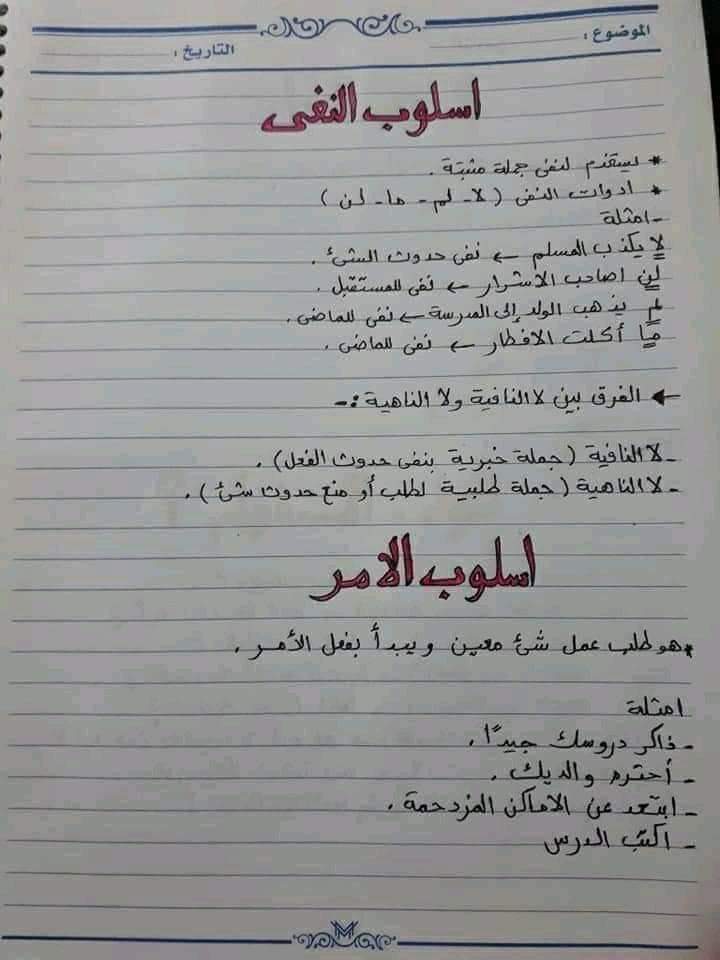 الموضوع :
التاريخ :
اسلوب النفى
* يستخدم لنفى جملة مثبتة .
* ادوات النفى ( لا - لم - ما - لن )
- امثلة
لا يكذب المسلم ← نفى حدوث الشئ .
لن اصاحب الاشرار ← نفى للمستقبل .
لم يذهب الولد إلى المدرسة ← نفى للماضى .
ما أكلت الافطار ← نفى للماضى .
← الفرق بين لا النافية ولا الناهية :-
- لا النافية ( جملة خبرية بنفى حدوث الفعل ) .
- لا الناهية ( جملة طلبية لطلب أو منع حدوث شئ ) .
اسلوب الامر
* هو طلب عمل شئ معين و يبدأ بفعل الأمر .
امثلة
- ذاكر دروسك جيدًا .
- أحترم والديك .
- ابتعد عن الاماكن المزدحمة .
- اكتب الدرس
M